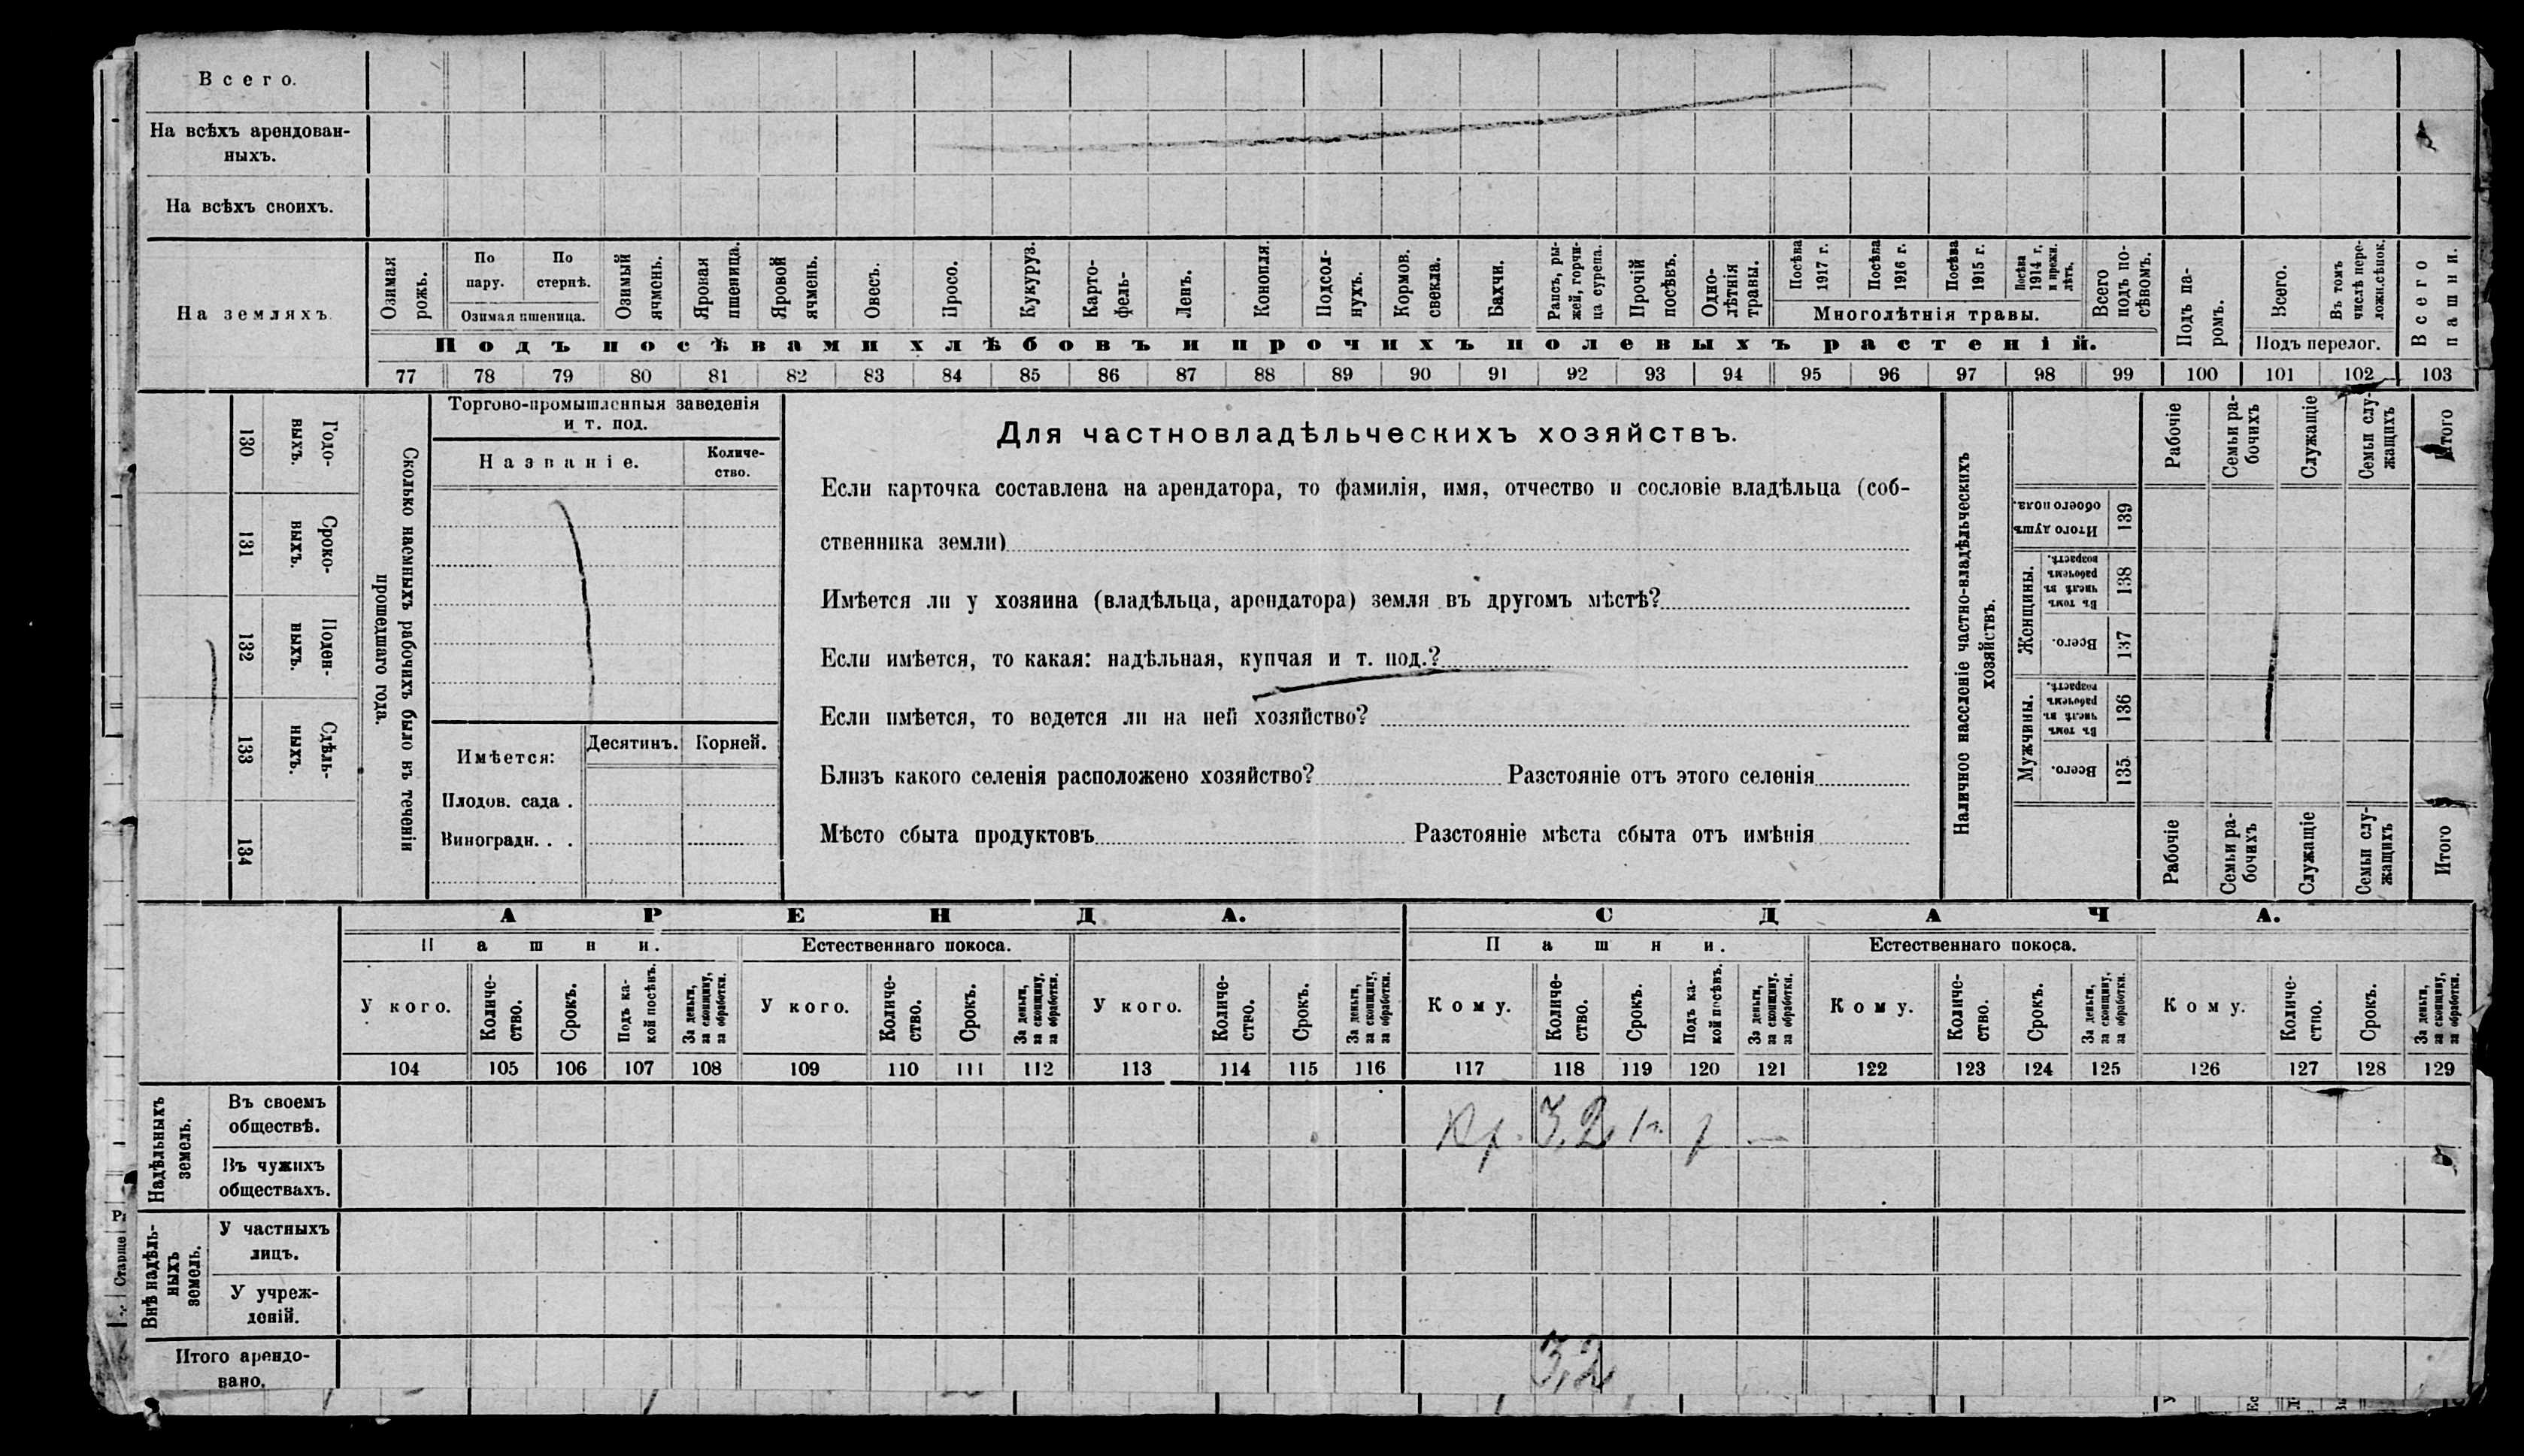 Всего.
На всѣхъ арендован-
ныхъ.
На всѣхъ своихъ.
На земляхъ
Озимая рожь.
По пару.
По стернѣ.
Озимая пшеница.
Озимый ячмень.
Яровая пшеница.
Яровой ячмень.
Овесъ.
Просо.
Кукуруз.
Карто-
фель-
Ленъ.
Конопля.
Подсол-
нухъ.
Кормов.
свекла.
Бахчи.
Рапсъ, ры-
жей, горчи-
ца сурепа.
Прочій
посѣвъ.
Одно-
лѣтнія
травы.
Посѣва
1917 г.
Посѣва
1916 г.
Посѣва
1915 г.
Посѣва
1914 г.
и прежн.
лѣтъ.
Многолѣтнія травы.
Всего
подъ по-
сѣвомъ.
Подъ па-
ромъ.
Всего.
Въ томъ
числѣ пере-
ложн.сѣнок.
Подъ перелог.
Всего
пашни.
Подъ посѣвами хлѣбовъ и прочихъ полевыхъ растеній.
77 78 79 80 81 82 83 84 85 86 87 88 89 90 91 92 93 94 95 96 97 98 99 100 101 102 103
130
Годо-
выхъ.
131
Сроко-
выхъ.
132
Поден-
ныхъ.
133
Сдѣль-
ныхъ.
134
Сколько наемныхъ рабочихъ было въ теченіи
прошедшаго года.
Торгово-промышленныя заведенія
и т. под.
Названіе.
Количе-
ство.
Имѣется:
Десятинъ.
Корней.
Плодов. сада .
Виноградн. . .
Для частновладѣльческихъ хозяйствъ.
Если карточка составлена на арендатора, то фамилія, имя, отчество и сословіе владѣльца (соб-
ственника земли)
Имѣется ли у хозяина (владѣльца, арендатора) земля въ другомъ мѣстѣ?
Если имѣется, то какая: надѣльная, купчая и т. под.?
Если имѣется, то ведется ли на ней хозяйство?
Близъ какого селенія расположено хозяйство? Разстояніе отъ этого селенія
Мѣсто сбыта продуктовъ Разстояніе мѣста сбыта отъ имѣнія
Наличное населеніе частно-владѣльческихъ
хозяйствъ.
Рабочіе
Семьи ра-
бочихъ
Служащіе
Семьи слу-
жащихъ
Итого
Итого душъ
обоего пола.
139
Женщины.
Въ томъ
числѣ въ
рабочемъ
возрастѣ.
138
Всего.
137
Мужчины.
Въ томъ
числѣ въ
рабочемъ
возрастѣ.
136
Всего.
135
Рабочіе
Семьи ра-
бочихъ
Служащіе
Семьи слу-
жащихъ
Итого
АРЕНДА.
СДАЧА.
Пашни.
Естественнаго покоса.
Пашни.
Естественнаго покоса.
У кого.
Количе-
ство.
Срокъ.
Подъ ка-
кой посѣвъ.
За деньги,
за скопщину,
за обработки.
У кого.
Количе-
ство.
Срокъ.
За деньги,
за скопщину,
за обработки.
У кого.
Количе-
ство.
Срокъ.
За деньги,
за скопщину,
за обработки.
Кому.
Количе-
ство.
Срокъ.
Подъ ка-
кой посѣвъ.
За деньги,
за скопщину,
за обработки.
Кому.
Количе-
ство.
Срокъ.
За деньги,
за скопщину,
за обработки.
Кому.
Количе-
ство.
Срокъ.
За деньги,
за скопщину,
за обработки.
104 105 106 107 108 109 110 111 112 113 114 115 116 117 118 119 120 121 122 123 124 125 126 127 128 129
Надѣльныхъ
земель.
Въ своемъ
обществѣ.
Кр. 3,2 1 г. р —
Въ чужихъ
обществахъ.
Внѣ надѣль-
ныхъ
земель.
У частныхъ
лицъ.
У учреж-
деній.
Итого арендо-
вано.
3,2
Старше